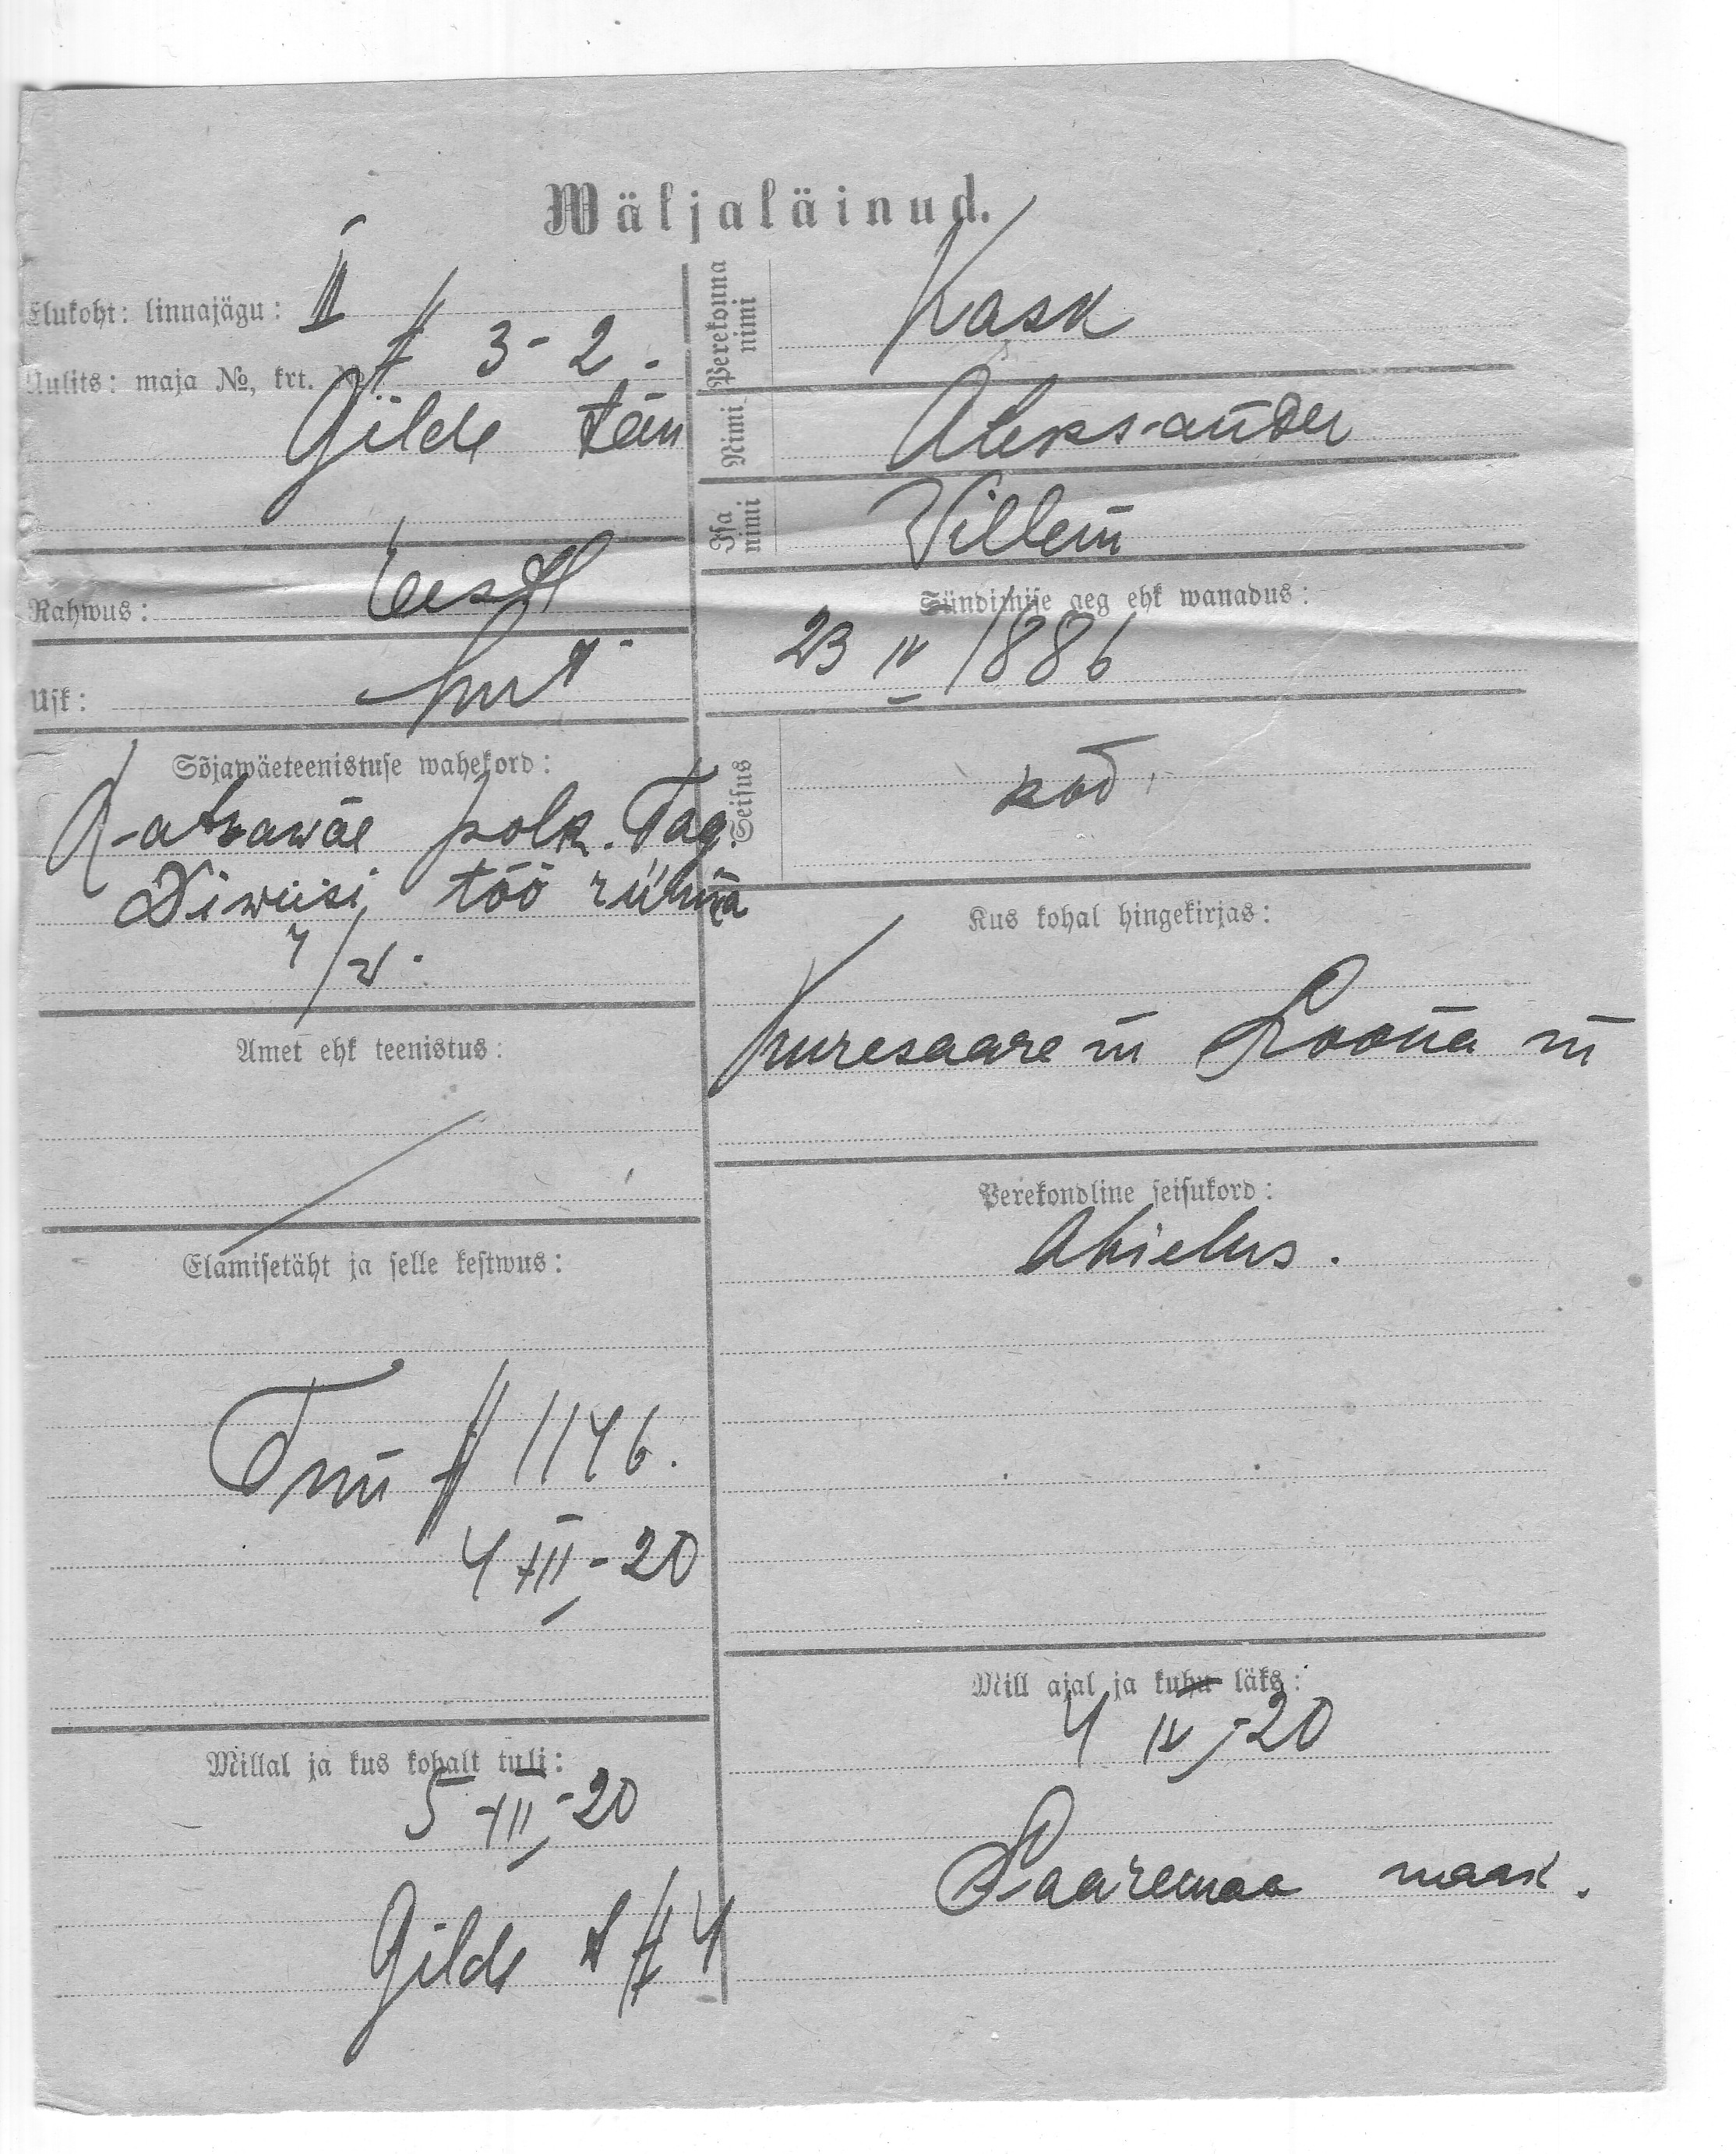 Wäljaläinud.
Elukoht: linnajagu: II
Uulits: maja №, krt. № 3-2.
Gilde tän
Rahwus: Eesti
Usk: Lut
Sõjawäeteenistuse wahekord:
Ratsawäe polk. Tag.
Diwiisi töö rühma
Amet ehk teenistus:
Elamisetäht ja selle kestwus:
№ 1146.
4 III - 20
Millal ja kus kohalt tuli:
5 III - 20
Gilde t № 4
Perekonna nimi Kask
Nimi Aleksander
Isa nimi Villem
Sündimise aeg ehk wanadus:
23 IV 1886
Seisus kod.
Kus kohal hingekirjas:
Kuresaare m Loona m
Perekondline seisukord:
Abielus.
Mill ajal ja kuhu läks:
4 IV - 20
Saaremaa maak.